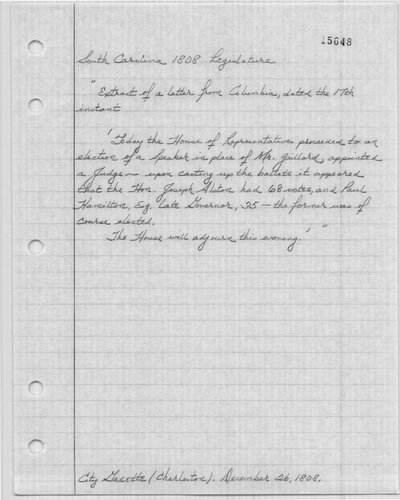 15648
South Carolina 1808 Legislature
"Extract of a letter from Columbia, dated the 17th
instant
'Today the House of Representatives proceeded to an
election of a Speaker in place of Mr. Gaillard, appointed
a Judge — upon casting up the ballots it appeared
that the Hon. Joseph Alston had 68 votes, and Paul
Hamilton, Esq. late Governor, 35 — the former was of
course elected.
The House will adjourn this evening.' "
City Gazette (Charleston). December 26, 1808.